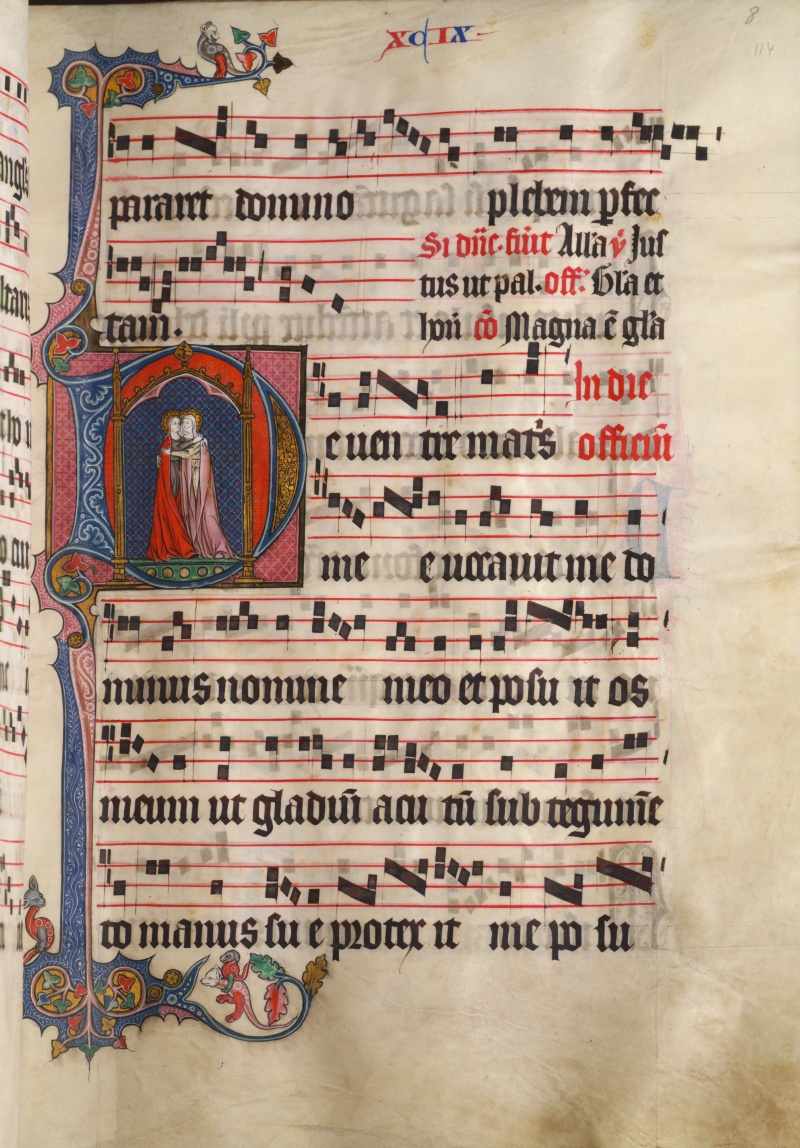 xcix
8
114
pararet domino plebem ꝑfec
Si dn̄c. fūit All'a ỹ Jus
tus ut pal. off. Gl'a et
tam. hon̄ cō Magna ē gl'a
In die
De uen tre mat's officiū
me e uocauit me do
minus nomine meo et posu it os
meum ut gladiū acu tū sub tegumīe
to manus su e protex it me po su